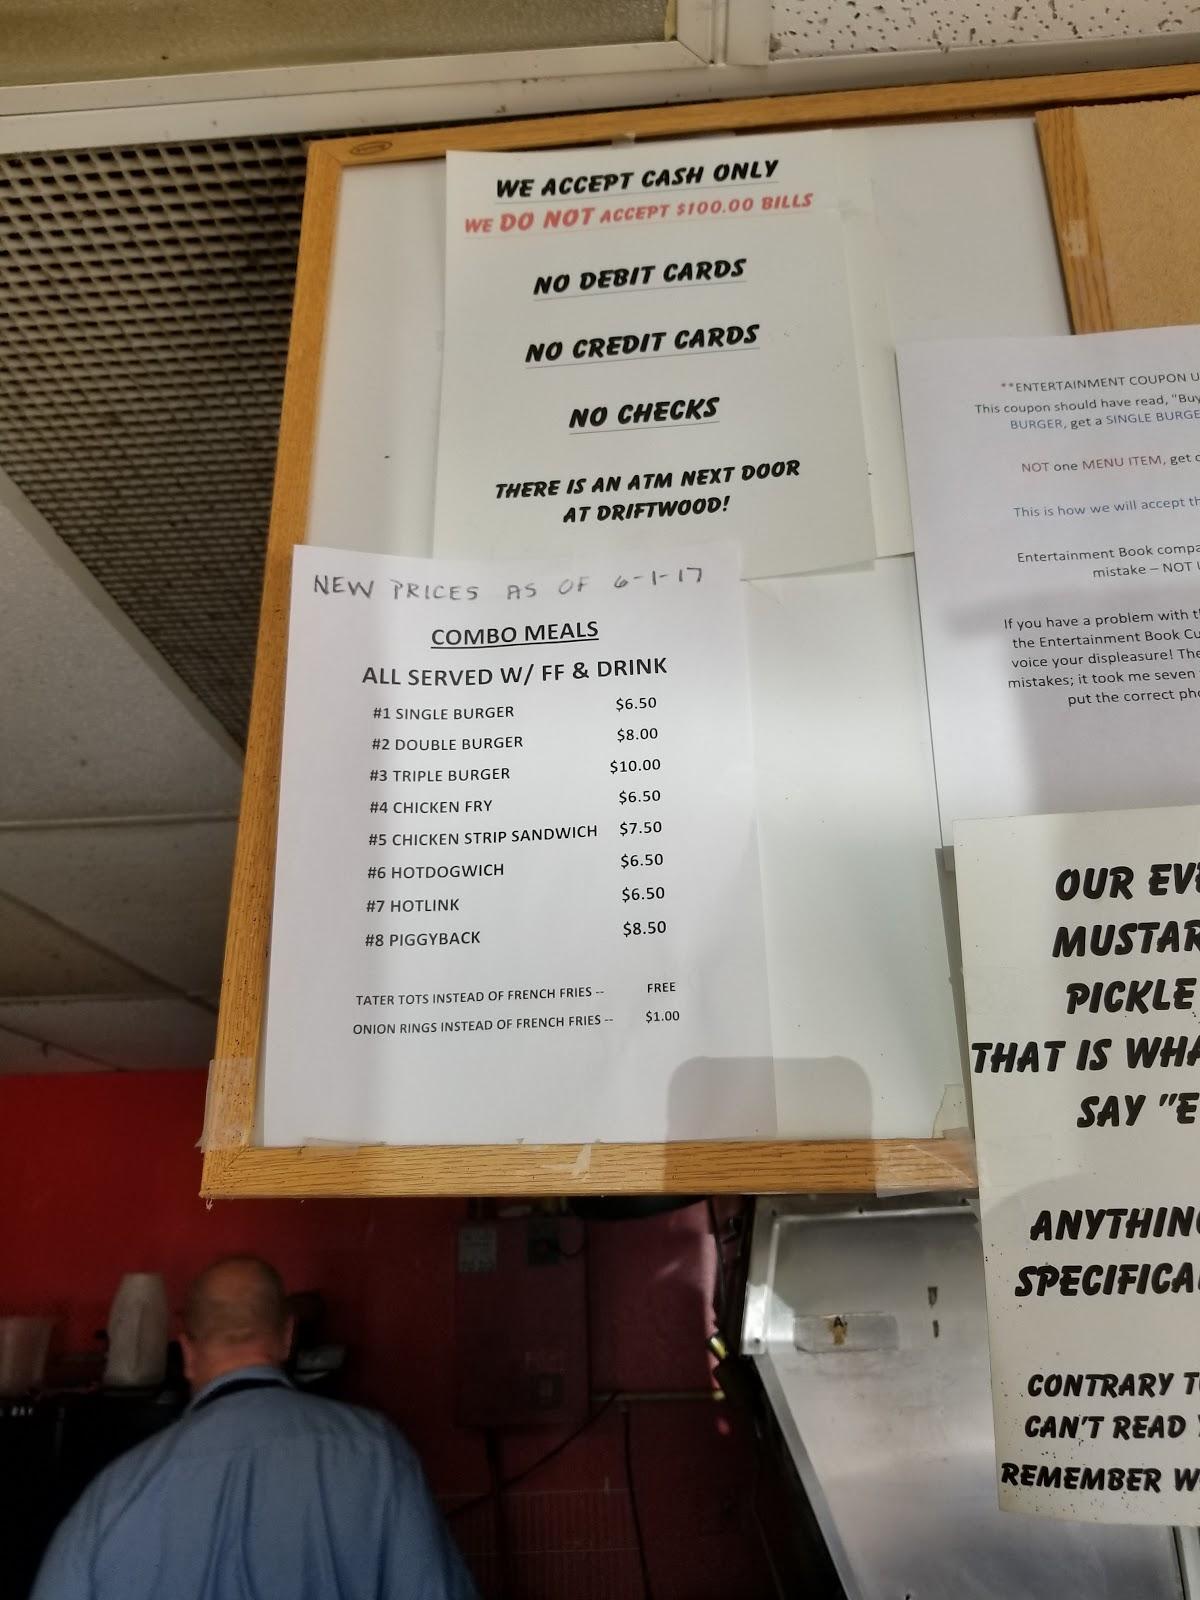 WE ACCEPT CASH ONLY
WE DO NOT ACCEPT $100.00 BILLS
NO DEBIT CARDS
NO CREDIT CARDS
NO CHECKS
THERE IS AN ATM NEXT DOOR
AT DRIFTWOOD!
NEW PRICES AS OF 6-1-17
COMBO MEALS
ALL SERVED W/ FF & DRINK
#1 SINGLE BURGER $6.50
#2 DOUBLE BURGER $8.00
#3 TRIPLE BURGER $10.00
#4 CHICKEN FRY $6.50
#5 CHICKEN STRIP SANDWICH $7.50
#6 HOTDOGWICH $6.50
#7 HOTLINK $6.50
#8 PIGGYBACK $8.50
TATER TOTS INSTEAD OF FRENCH FRIES -- FREE
ONION RINGS INSTEAD OF FRENCH FRIES -- $1.00
**ENTERTAINMENT COUPON U
This coupon should have read, "Buy
BURGER, get a SINGLE BURGE
NOT one MENU ITEM, get
This is how we will accept th
Entertainment Book compa
mistake – NOT
If you have a problem with th
the Entertainment Book Cu
voice your displeasure! The
mistakes; it took me seven
put the correct pho
OUR EVE
MUSTAR
PICKLE
THAT IS WHA
SAY "E
ANYTHING
SPECIFICA
CONTRARY T
CAN'T READ
REMEMBER W